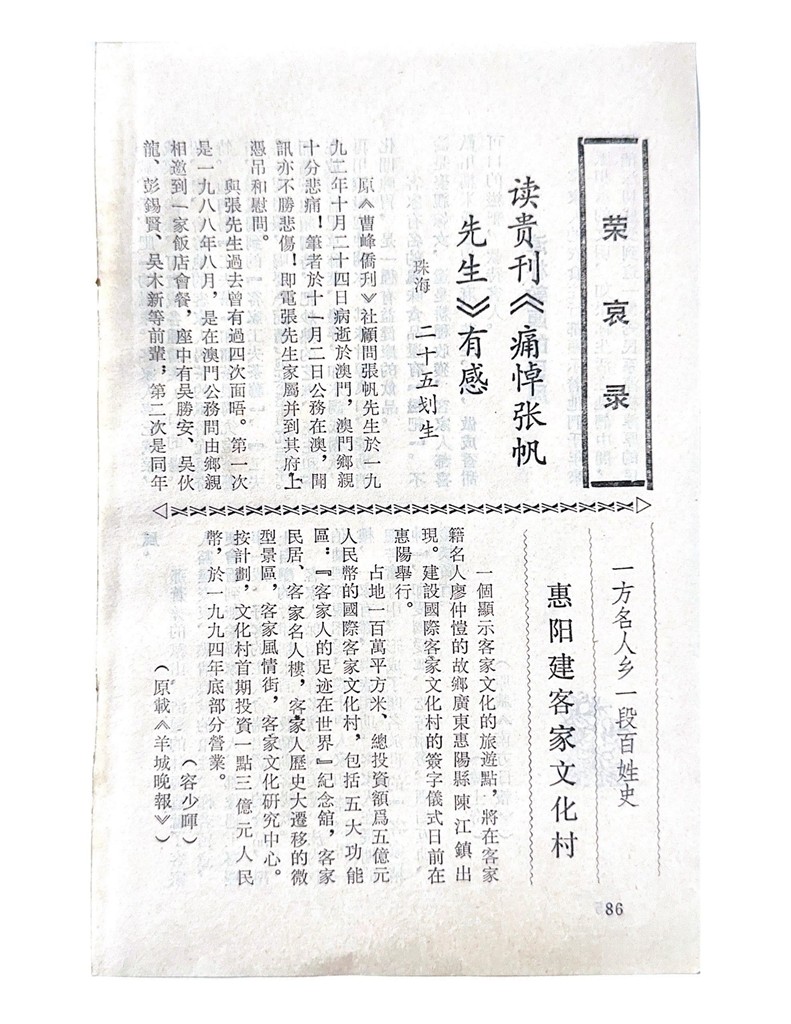 荣哀录
读贵刊《痛悼张帆
先生》有感
珠海 二十五划生
原《曹峰僑刊》社顧問張帆先生於一九
九二年十月二十四日病逝於澳門，澳門鄉親
十分悲痛！筆者於十一月二日公務在澳，聞
訊亦不勝悲傷！即電張先生家屬并到其府上
憑吊和慰問。
與張先生過去曾有過四次面唔。第一次
是一九八八年八月，是在澳門公務間由鄉親
相邀到一家飯店會餐，座中有吴勝安、吴伙
龍、彭錫賢、吴木新等前輩，第二次是同年
一方名人乡一段百姓史
惠阳建客家文化村
一個顯示客家文化的旅遊點，將在客家
籍名人廖仲愷的故鄉廣東惠陽縣陳江鎮出
現。建設國際客家文化村的簽字儀式日前在
惠陽舉行。
占地一百萬平方米、總投資額爲五億元
人民幣的國際客家文化村，包括五大功能
區：『客家人的足迹在世界』紀念舘，客家
民居、客家名人樓，客家人歷史大遷移的微
型景區，客家風情街，客家文化研究中心。
按計劃，文化村首期投資一點三億元人民
幣，於一九九四年底部分營業。
（容少暉）
（原載《羊城晚報》）
86